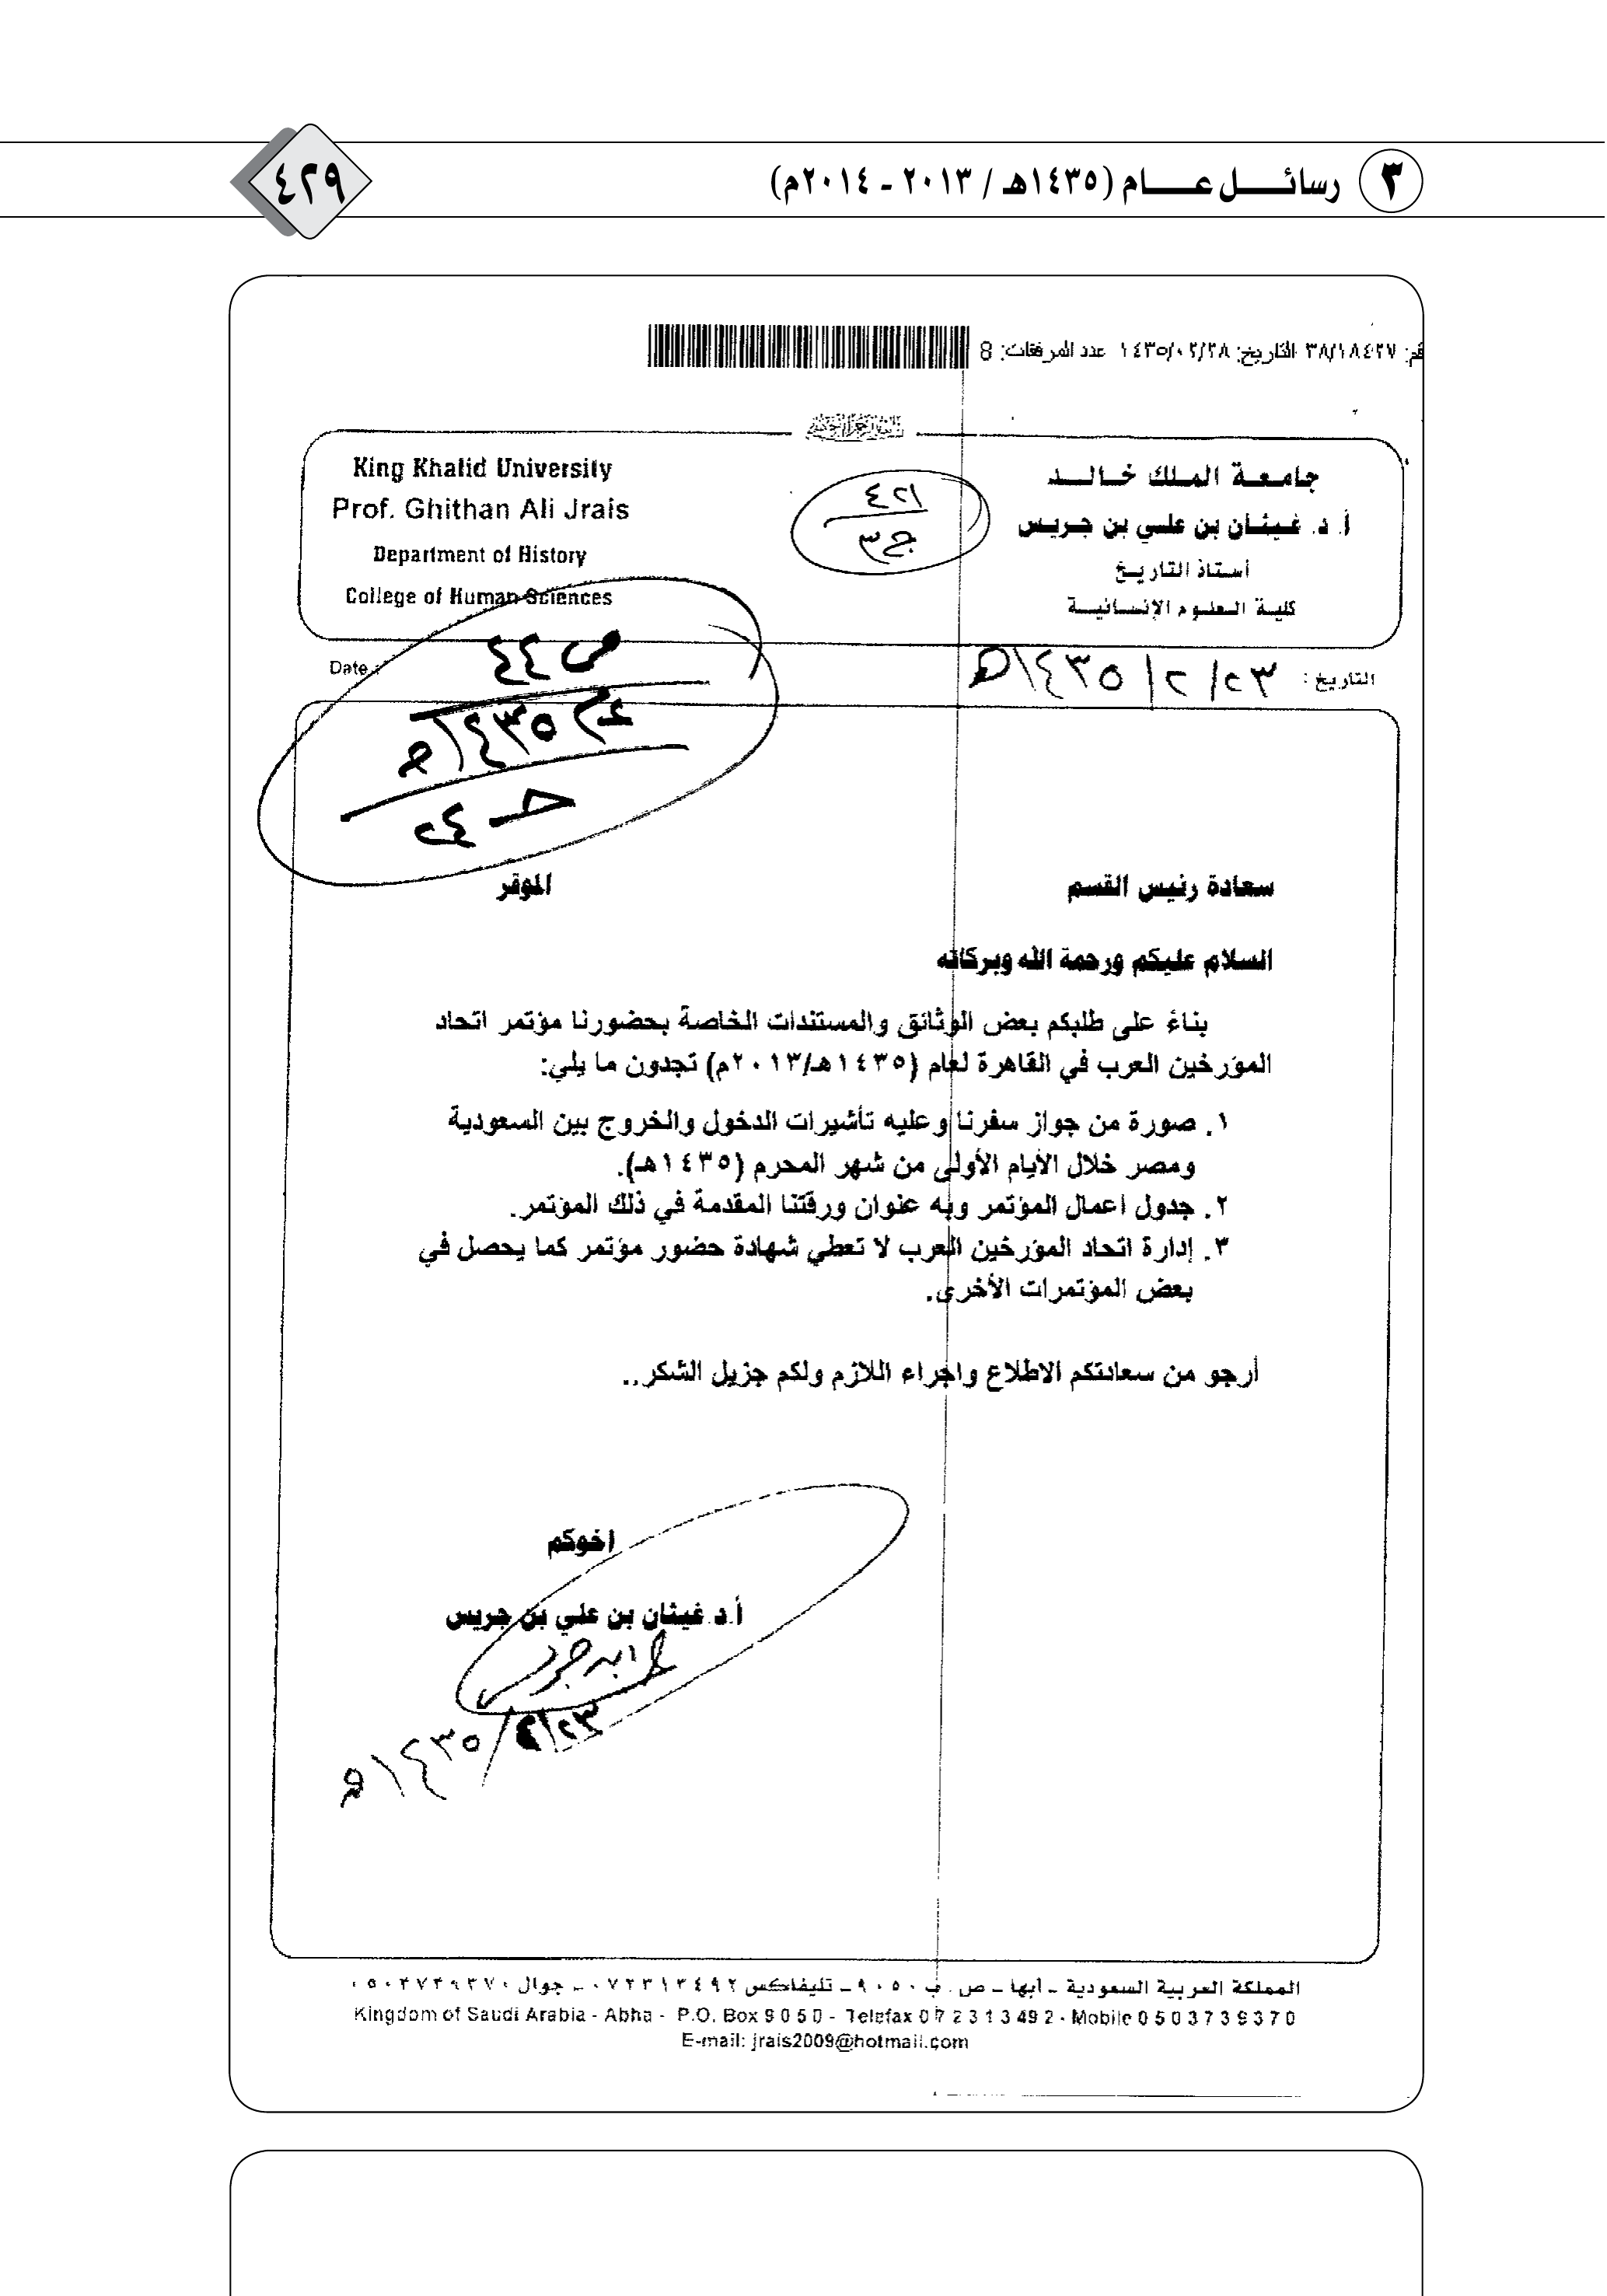 ٣ رسائل عام (١٤٣٥هـ / ٢٠١٣ - ٢٠١٤م)
٤٢٩
قم: ٣٨/١٨٤٢٧ التاريخ: ١٤٣٥/٠٢/٢٨ عدد المرفقات: 8
جامعة الملك خالد
أ. د. غيثان بن علي بن جريس
أستاذ التاريخ
كلية العلوم الإنسانية
King Khalid University
Prof. Ghithan Ali Jrais
Department of History
College of Human Sciences
٤٢١
ج٣
التاريخ : ٢٣/٢/١٤٣٥هـ
Date :
ص ٤٤
عام ١٤٣٥هـ
حـ ٢٤
سعادة رئيس القسم الموقر
السلام عليكم ورحمة الله وبركاته
بناءً على طلبكم بعض الوثائق والمستندات الخاصة بحضورنا مؤتمر اتحاد
المؤرخين العرب في القاهرة لعام (١٤٣٥هـ/٢٠١٣م) تجدون ما يلي:
١. صورة من جواز سفرنا وعليه تأشيرات الدخول والخروج بين السعودية
ومصر خلال الأيام الأولى من شهر المحرم (١٤٣٥هـ).
٢. جدول اعمال المؤتمر وبه عنوان ورقتنا المقدمة في ذلك المؤتمر.
٣. إدارة اتحاد المؤرخين العرب لا تعطي شهادة حضور مؤتمر كما يحصل في
بعض المؤتمرات الأخرى.
أرجو من سعادتكم الاطلاع واجراء اللازم ولكم جزيل الشكر..
اخوكم
أ.د. غيثان بن علي بن جريس
٢٣/٢/١٤٣٥هـ
المملكة العربية السعودية ـ أبها ـ ص. ب ٩٠٥٠ ـ تليفاكس ٠٧٢٣١٣٤٩٢ ـ جوال ٠٥٠٣٧٣٩٣٧٠
Kingdom of Saudi Arabia - Abha - P.O. Box 9 0 5 0 - Telefax 0 7 2 3 1 3 49 2 - Mobile 0 5 0 3 7 3 9 3 7 0
E-mail: jrais2009@hotmail.com